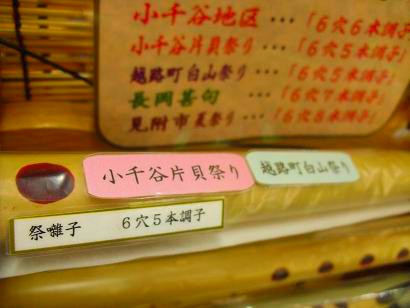 小千谷地区 … 「6穴6本調子」
小千谷片貝祭り … 「6穴5本調子」
越路町白山祭り … 「6穴5本調子」
長岡甚句 … 「6穴7本調子」
見附市夏祭り … 「6穴8本調子」
小千谷片貝祭り
越路町白山祭り
祭囃子 6穴5本調子